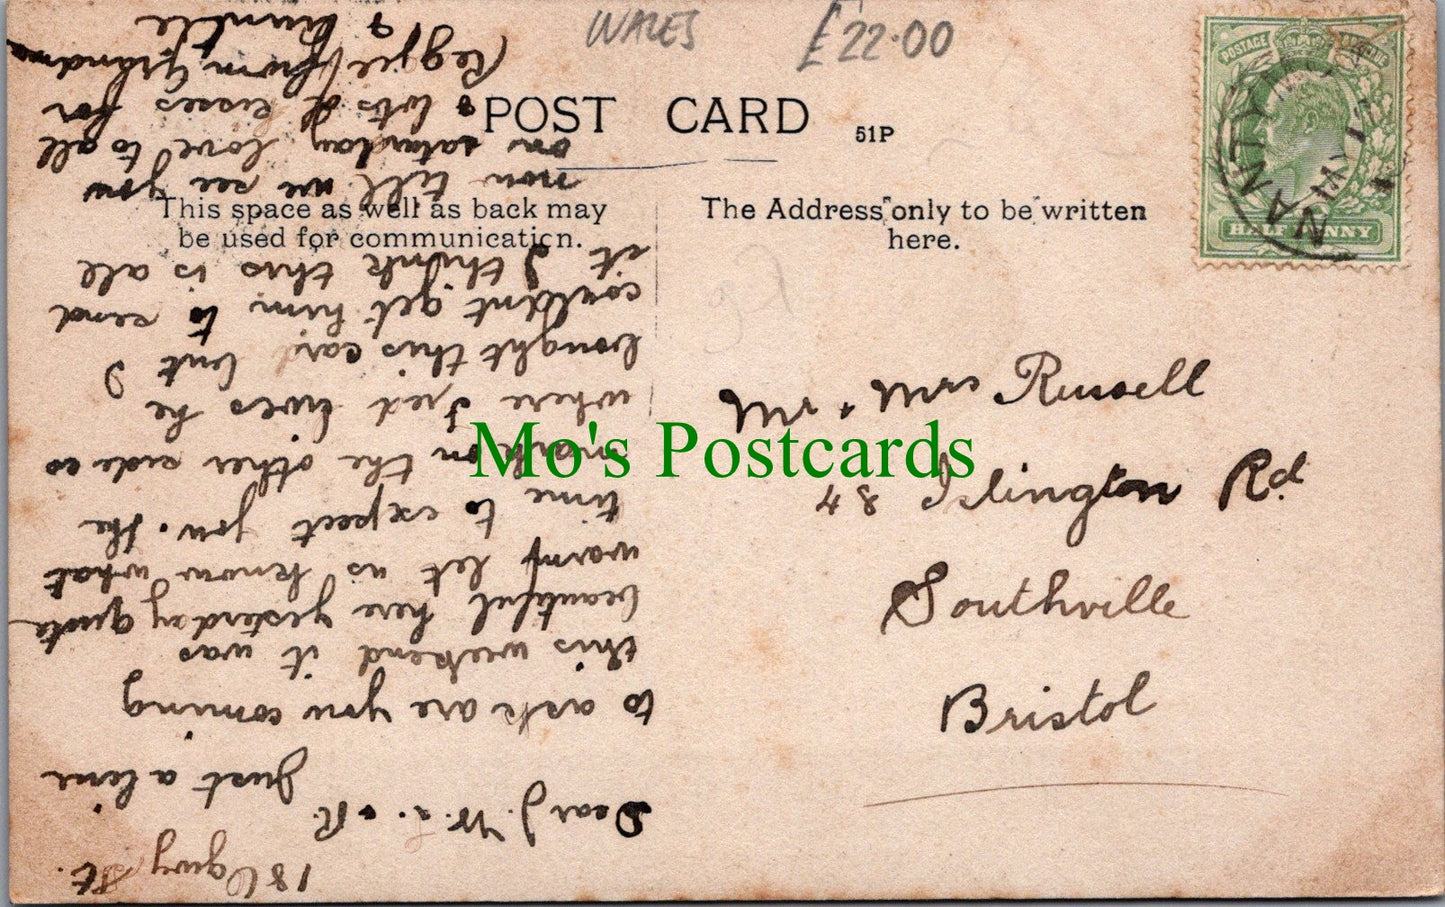 WALES
£22.00
POST CARD
51P
This space as well as back may
be used for communication.
The Address only to be written
here.
POSTAGE
HALF PENNY
NANTYM
Mr & Mrs Russell
48 Islington Rd
Southville
Bristol
Mo's Postcards
18 Ogwy St.
Dear J. W. L. & R.
Just a line
to ask are you coming
this weekend it was
beautiful here yesterday quite
warm let us know what
time to expect you. The
mark on the other side is
where Fred lives he
bought this card but I
couldnt get him to send
it I think this is all
now till we see you
on saturday love to all
& lots of kisses for
Reggie from Grandma
&